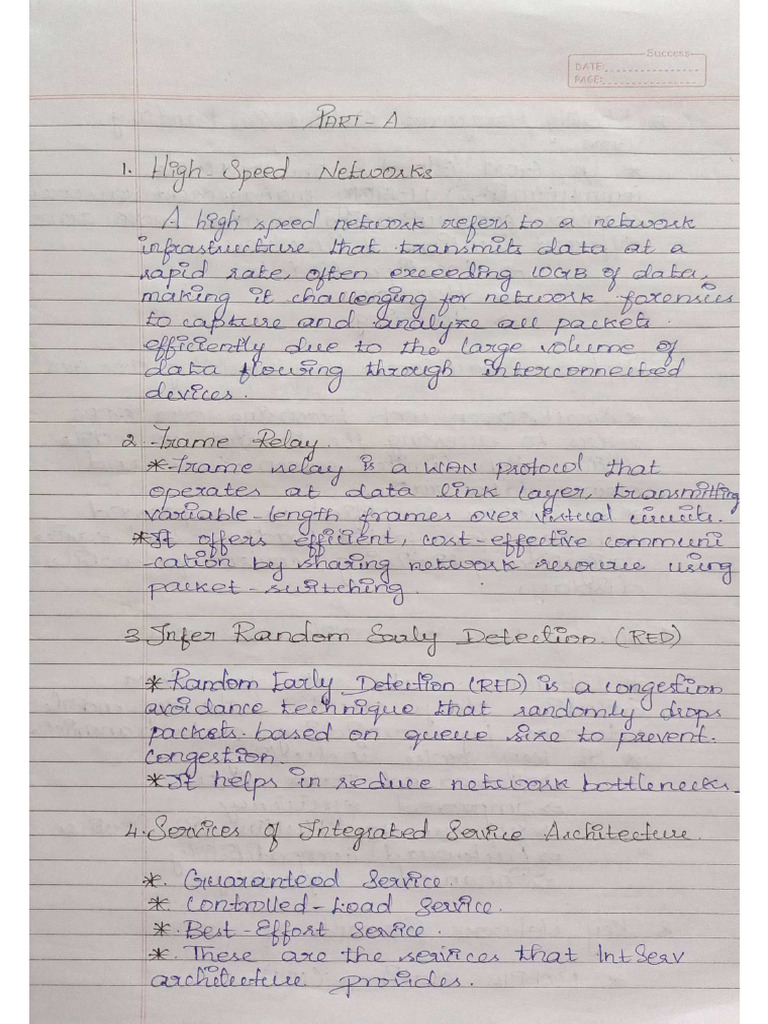 Success
DATE:
PAGE:
PART-A
1. High-Speed Networks
A high speed network refers to a network
infrastructure that transmits data at a
rapid rate, often exceeding 10GB of data,
making it challenging for network forensics
to capture and analyze all packets
efficiently due to the large volume of
data flowing through interconnected
devices.
2. Frame Relay.
*Frame relay is a WAN protocol that
operates at data link layer, transmitting
variable-length frames over virtual circuits.
*It offers efficient, cost-effective communi
-cation by sharing network resource using
packet-switching.
3. Infer Random Early Detection. (RED)
*Random Early Detection (RED) is a congestion
avoidance technique that randomly drops
packets based on queue size to prevent
congestion.
*It helps in reduce network bottlenecks.
4. Services of Integrated Service Architecture.
*. Guaranteed Service.
*. Controlled-Load Service.
*. Best-Effort Service.
*. These are the services that IntServ
architecture provides.